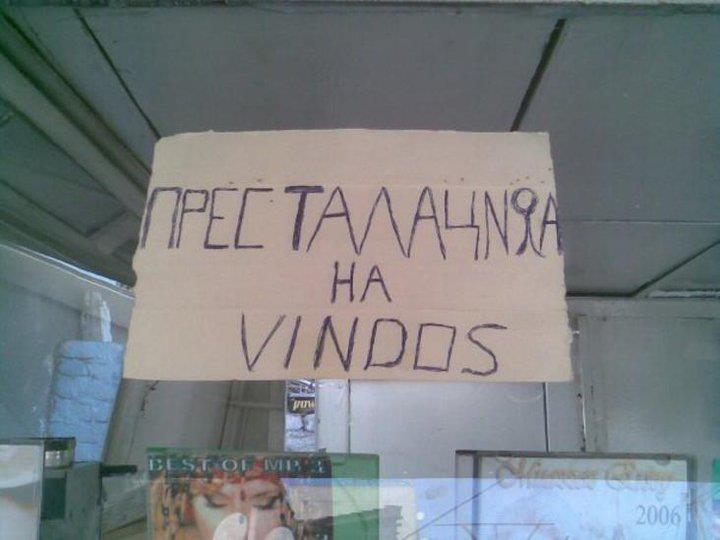 ПРЕСТАЛАЦИЯА
НА
VINDOS
BEST OF MP3
2006